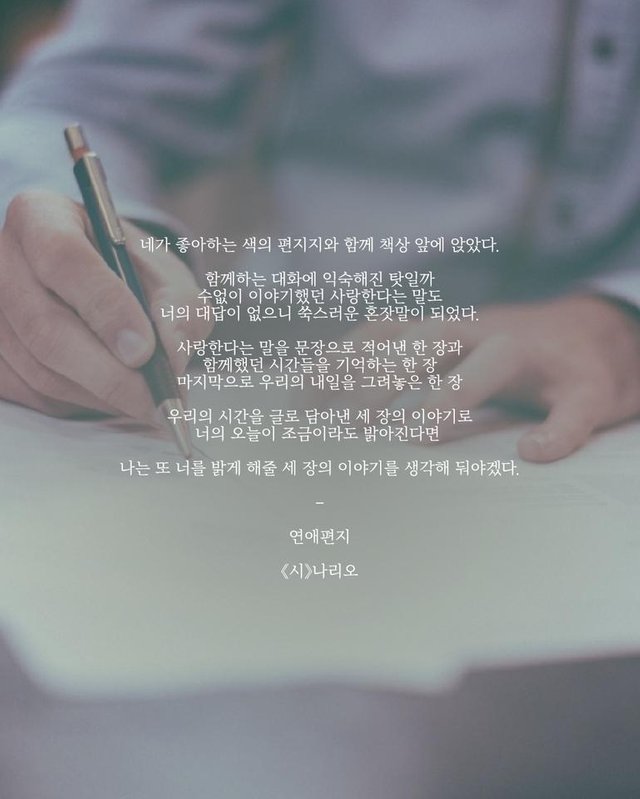 네가 좋아하는 색의 편지지와 함께 책상 앞에 앉았다.
함께하는 대화에 익숙해진 탓일까
수없이 이야기했던 사랑한다는 말도
너의 대답이 없으니 쑥스러운 혼잣말이 되었다.
사랑한다는 말을 문장으로 적어낸 한 장과
함께했던 시간들을 기억하는 한 장
마지막으로 우리의 내일을 그려놓은 한 장
우리의 시간을 글로 담아낸 세 장의 이야기로
너의 오늘이 조금이라도 밝아진다면
나는 또 너를 밝게 해줄 세 장의 이야기를 생각해 둬야겠다.
–
연애편지
《시》나리오